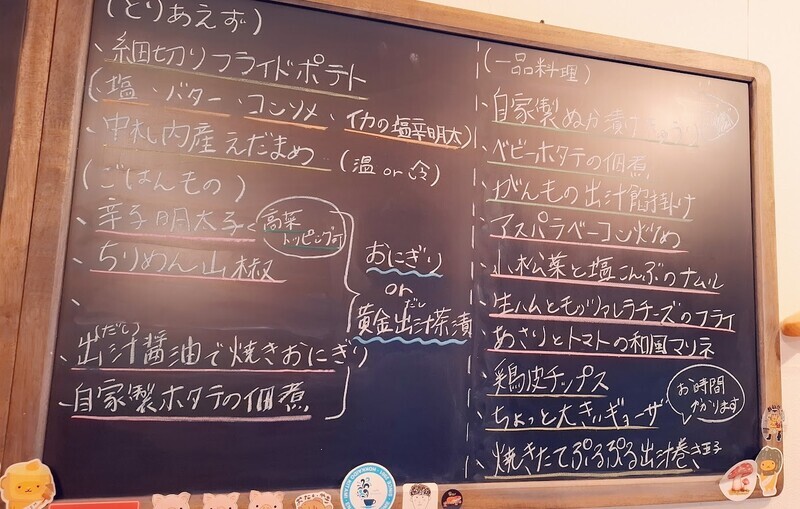 (とりあえず)
、細切りフライドポテト
(塩・バター・コンソメ・イカの塩辛明太)
、中札内産えだまめ (温 or 冷)
(ごはんもの)
、辛子明太子
高菜
トッピング可
、ちりめん山椒
、
おにぎり
or
だし
黄金出汁茶漬
(だし)
、出汁醤油で焼きおにぎり
、自家製ホタテの佃煮
(一品料理)
、自家製ぬか漬け
、ベビーホタテの佃煮
、がんもの出汁餡掛け
、アスパラベーコン炒め
、小松菜と塩こんぶのナムル
、生ハムとモッツァレラチーズのフライ
、あさりとトマトの和風マリネ
、鶏皮チップス
、ちょっと大きいギョーザ
お時間
かかります
、焼きたてぷるぷる出汁巻き玉子